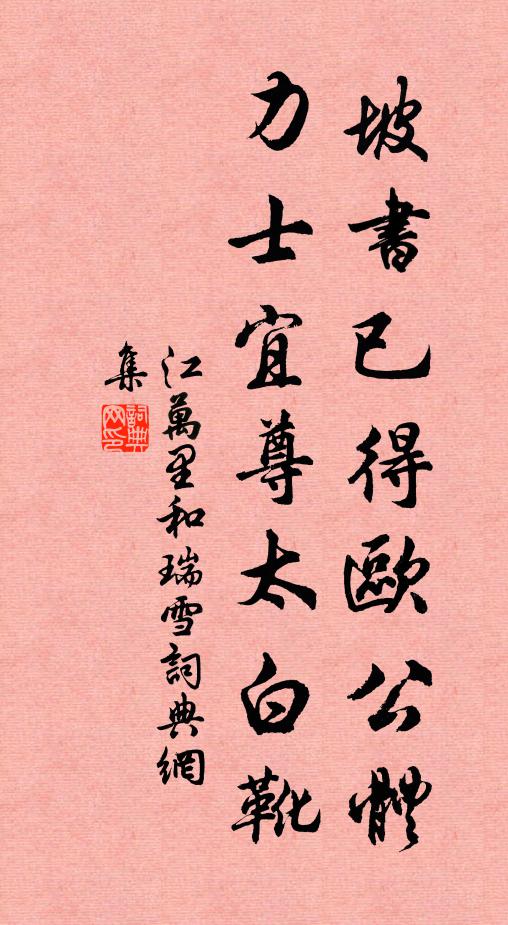 坡書已得歐公體
力士宜尊太白靴
江萬里和瑞雪詞典網
集
詞典
网印